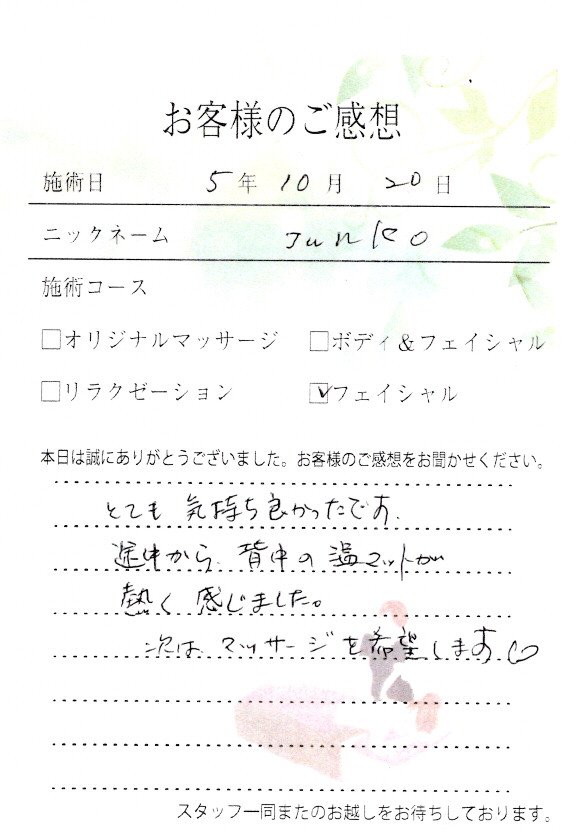 お客様のご感想
施術日 5年 10月 20日
ニックネーム Junko
施術コース
□オリジナルマッサージ □ボディ&フェイシャル
□リラクゼーション ☑フェイシャル
本日は誠にありがとうございました。お客様のご感想をお聞かせください。
とても 気持ち良かったです.
途中から、背中の温マットが
熱く 感じました。
次は マッサージを希望します♡
スタッフ一同またのお越しをお待ちしております。